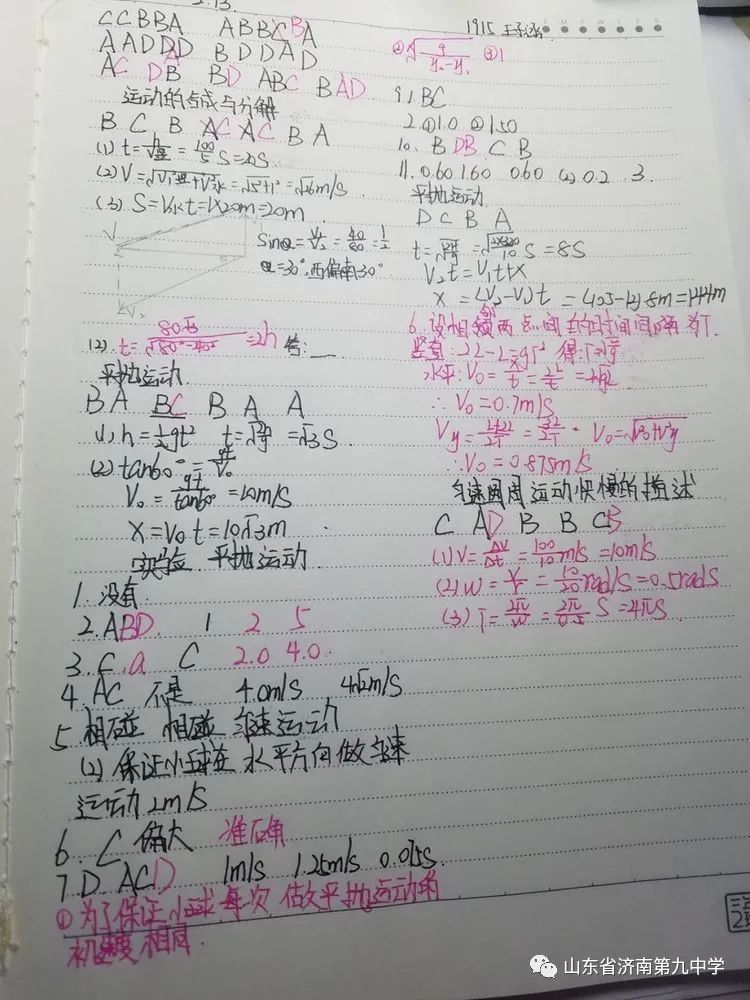 CCBBA ABBCBA
AADDD BDDAD
AC DB BD ABC BAD
运动的合成与分解
B C B AC AC B A
(2) V=√V₁²+V₂²=√5²+1²=√26m/s
(3) S=V水t=1×20m=20m
V
V₂
sinα=V₁/V₂=40/80=1/2
α=30°,西偏南30°
(2) t=80√3/√80²-40²=2h 答:
平抛运动
BA BC B A A
(1) h=1/2gt² t=√2h/g=√3s
(2) tan60°=gt/V₀
V₀=gt/tan60°=10m/s
X=V₀t=10√3m
实验 平抛运动
1. 没有
2. ABD. 1 2 5
3. C.a C 2.0 4.0
4. AC 不是 4.0m/s 4√2m/s
5 相碰 相碰 匀速运动
(2) 保证小球在水平方向做匀速
运动 2m/s
6. C 偏大 准确
7. D ACD 1m/s 1.25m/s 0.075s
① 为了保证小球每次做平抛运动的
初速度相同.
1915
9, BC
2.①1.0 ②1.50
10. B DB C B
11. 0.60 1.60 0.60 (2) 0.2 3.
平抛运动
D C B A
t=√2h/g=√2×320/10 s=8s
V₂t=V₁t+X
X=(V₂-V₁)t
=144m
6. 设相邻两点间的时间间隔为T.
∴V₀=0.7m/s
∴V₀=0.875m/s
匀速圆周运动快慢的描述
C AD B B CB
(1) V=ΔV/Δt=100/10m/s=10m/s
(2) W=V/r=10/20rad/s=0.5rad/s
(3) T=2π/W=2π/0.5 S=4πS
山东省济南第九中学